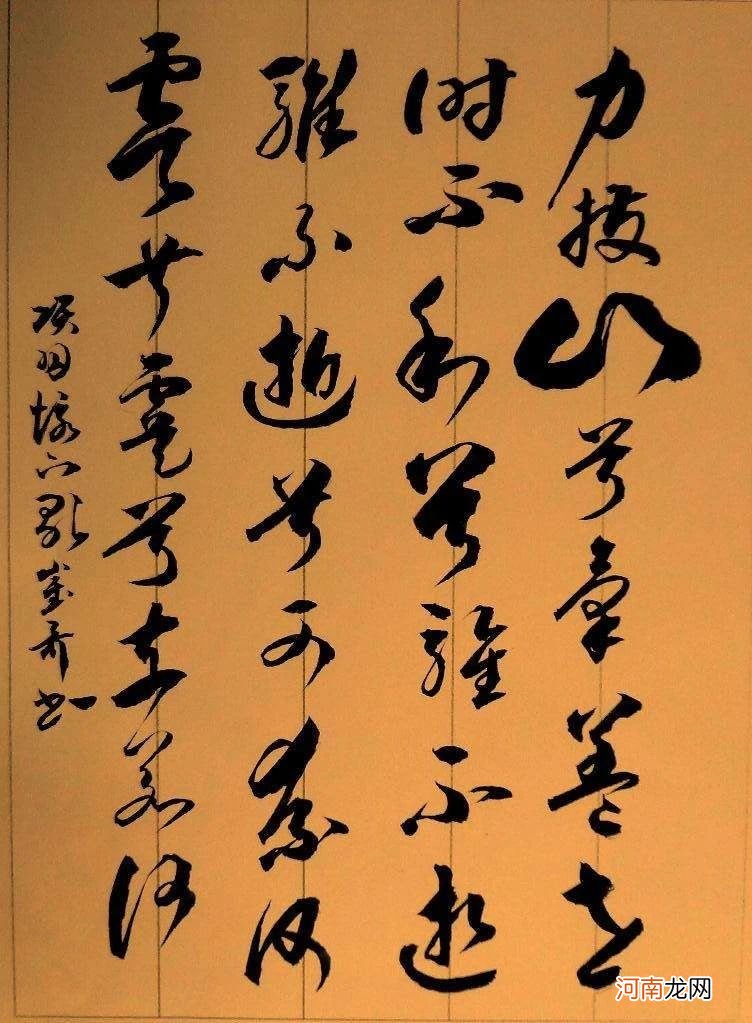 力拔山兮氣蓋世
时不利兮騅不逝
騅不逝兮可奈何
虞兮虞兮奈若何
项羽垓下歌 崔 书
河南龙网